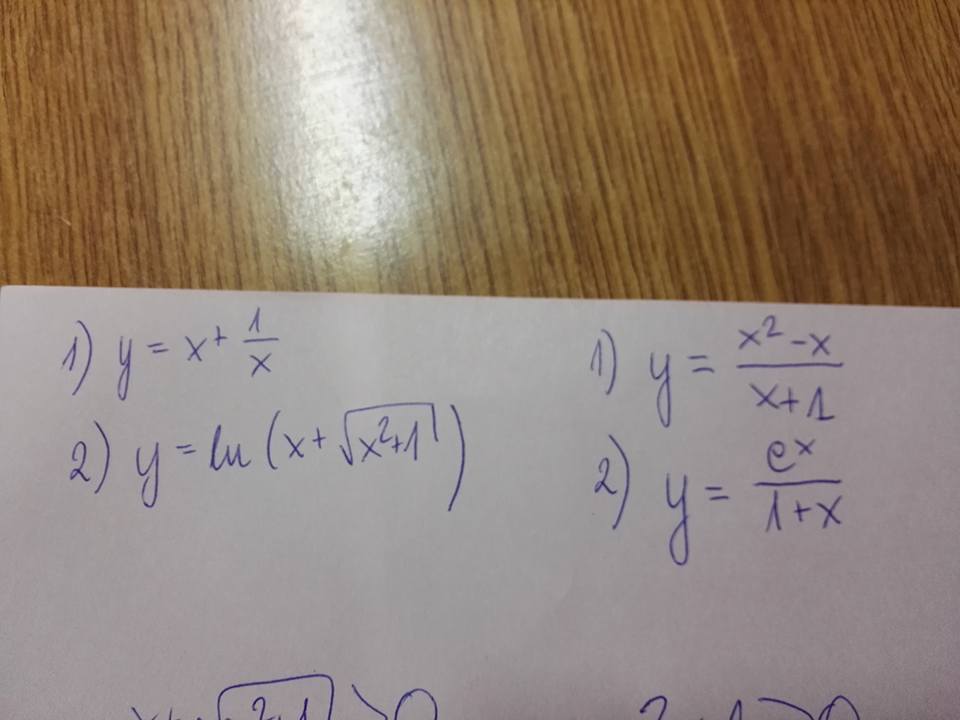 1) y = x + 1/x
2) y = ln(x + √(x²+1))
1) y = (x² - x)/(x+1)
2) y = e^x/(1+x)